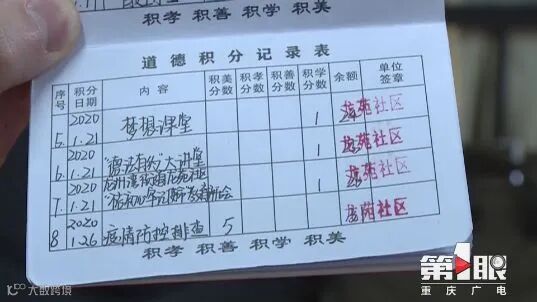 积孝 积善 积学 积美
道德积分记录表
序号 积分日期 内容 积美分数 积孝分数 积善分数 积学分数 余额 单位签章
5. 2020 1.21 梦想课堂 1 龙苑社区
6. 2020 1.21 大讲堂 1 龙苑社区
7. 2020 1.21 1 龙苑社区
8 2020 1.26 疫情防控排查 5 龙苑社区
积孝 积善 积学 积美
第1眼
重庆广电
大数跨境